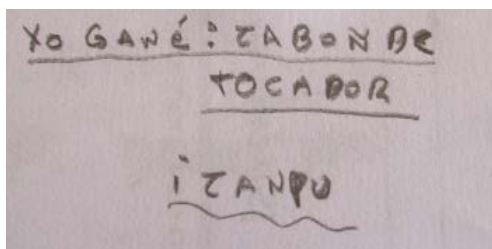 YO GANÉ: ZABON DE
TOCADOR
i ZANPU